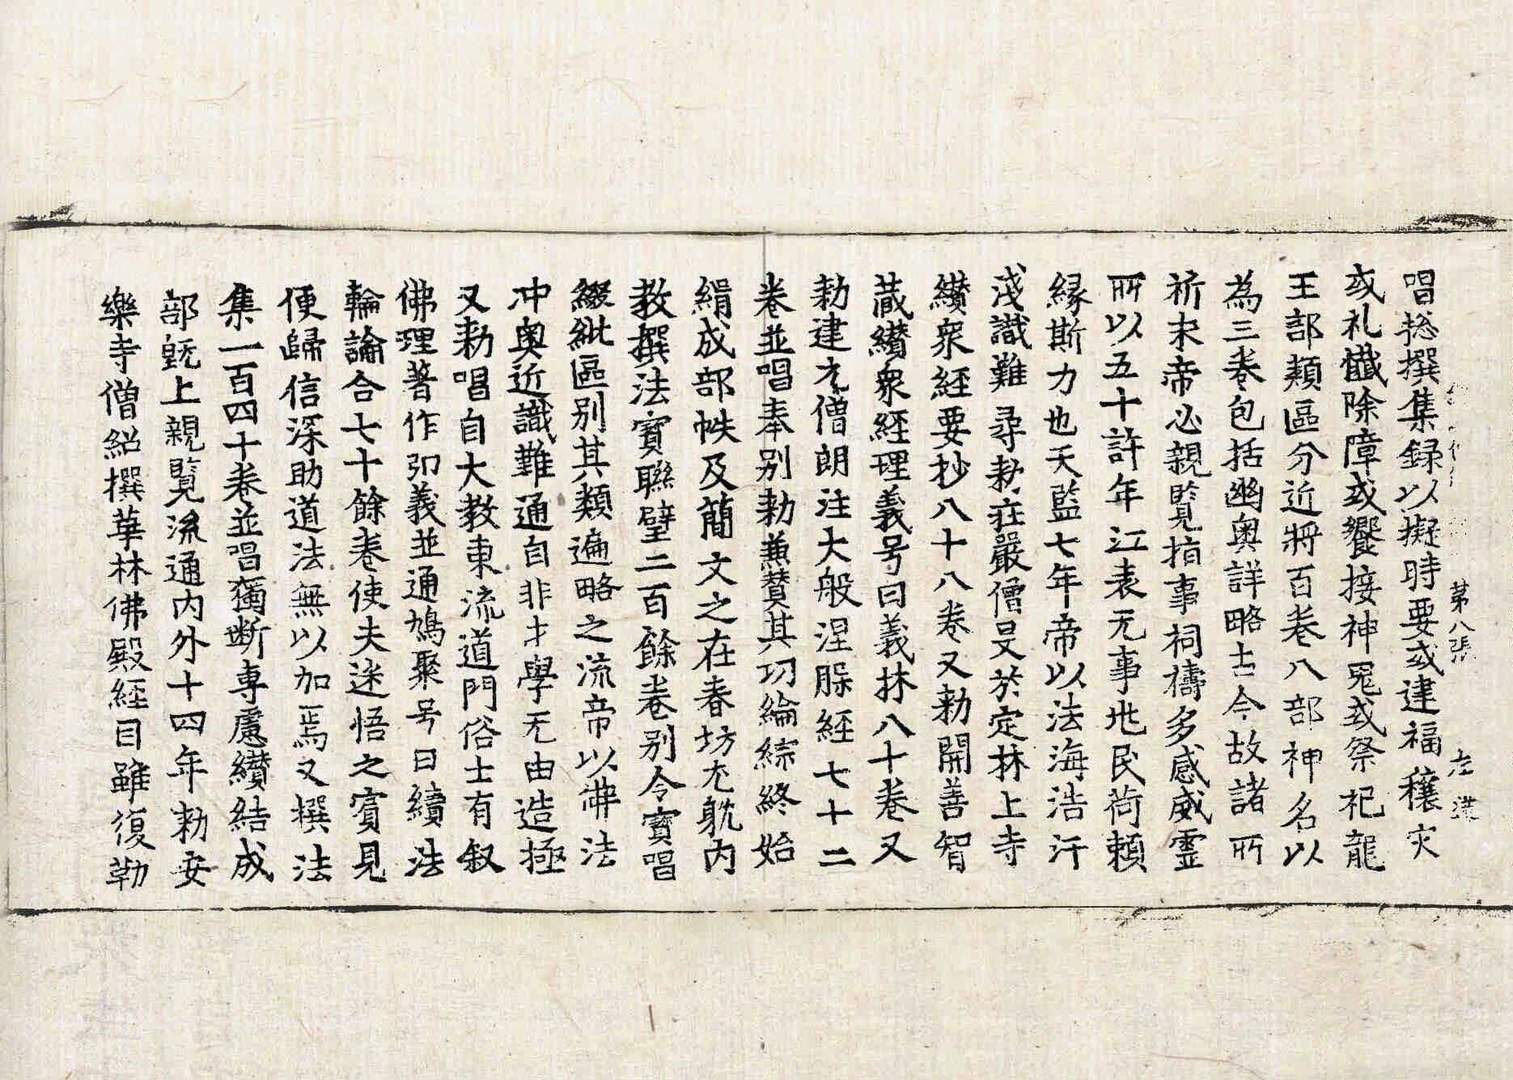 第八張 左 㳂
唱捴撰集録以擬時要或建福穰灾
或礼懺除障或饗接神䰟或祭祀龍
王部類區分近將百卷八部神名以
為三卷包括幽奥詳略古今故諸所
祈求帝必親覽指事祠禱多感威霊
所以五十許年江表无事兆民荷頼
縁斯力也天監七年帝以法海浩汗
淺識難尋敕莊嚴僧旻於定林上寺
纉衆經要抄八十八卷又勅開善智
蔵纉衆經理義号曰義林八十卷又
勅建元僧朗注大般涅槃經七十二
卷並唱奉别勅兼賛其功綸綜終始
緝成部帙及蕑文之在春坊尤躭内
教撰法寳聯璧二百餘卷别令寳唱
綴紕區别其類遍略之流帝以佛法
冲奥近識難通自非才學无由造極
又勅唱自大教東流道門俗士有叙
佛理著作弘義並通鳩聚号曰續法
輪論合七十餘卷使夫迷悟之賓見
便歸信深助道法無以加焉又撰法
集一百四十卷並唱獨断專慮纉結成
部旣上親覽流通内外十四年勅安
樂寺僧紹撰華林佛殿經目雖復勒